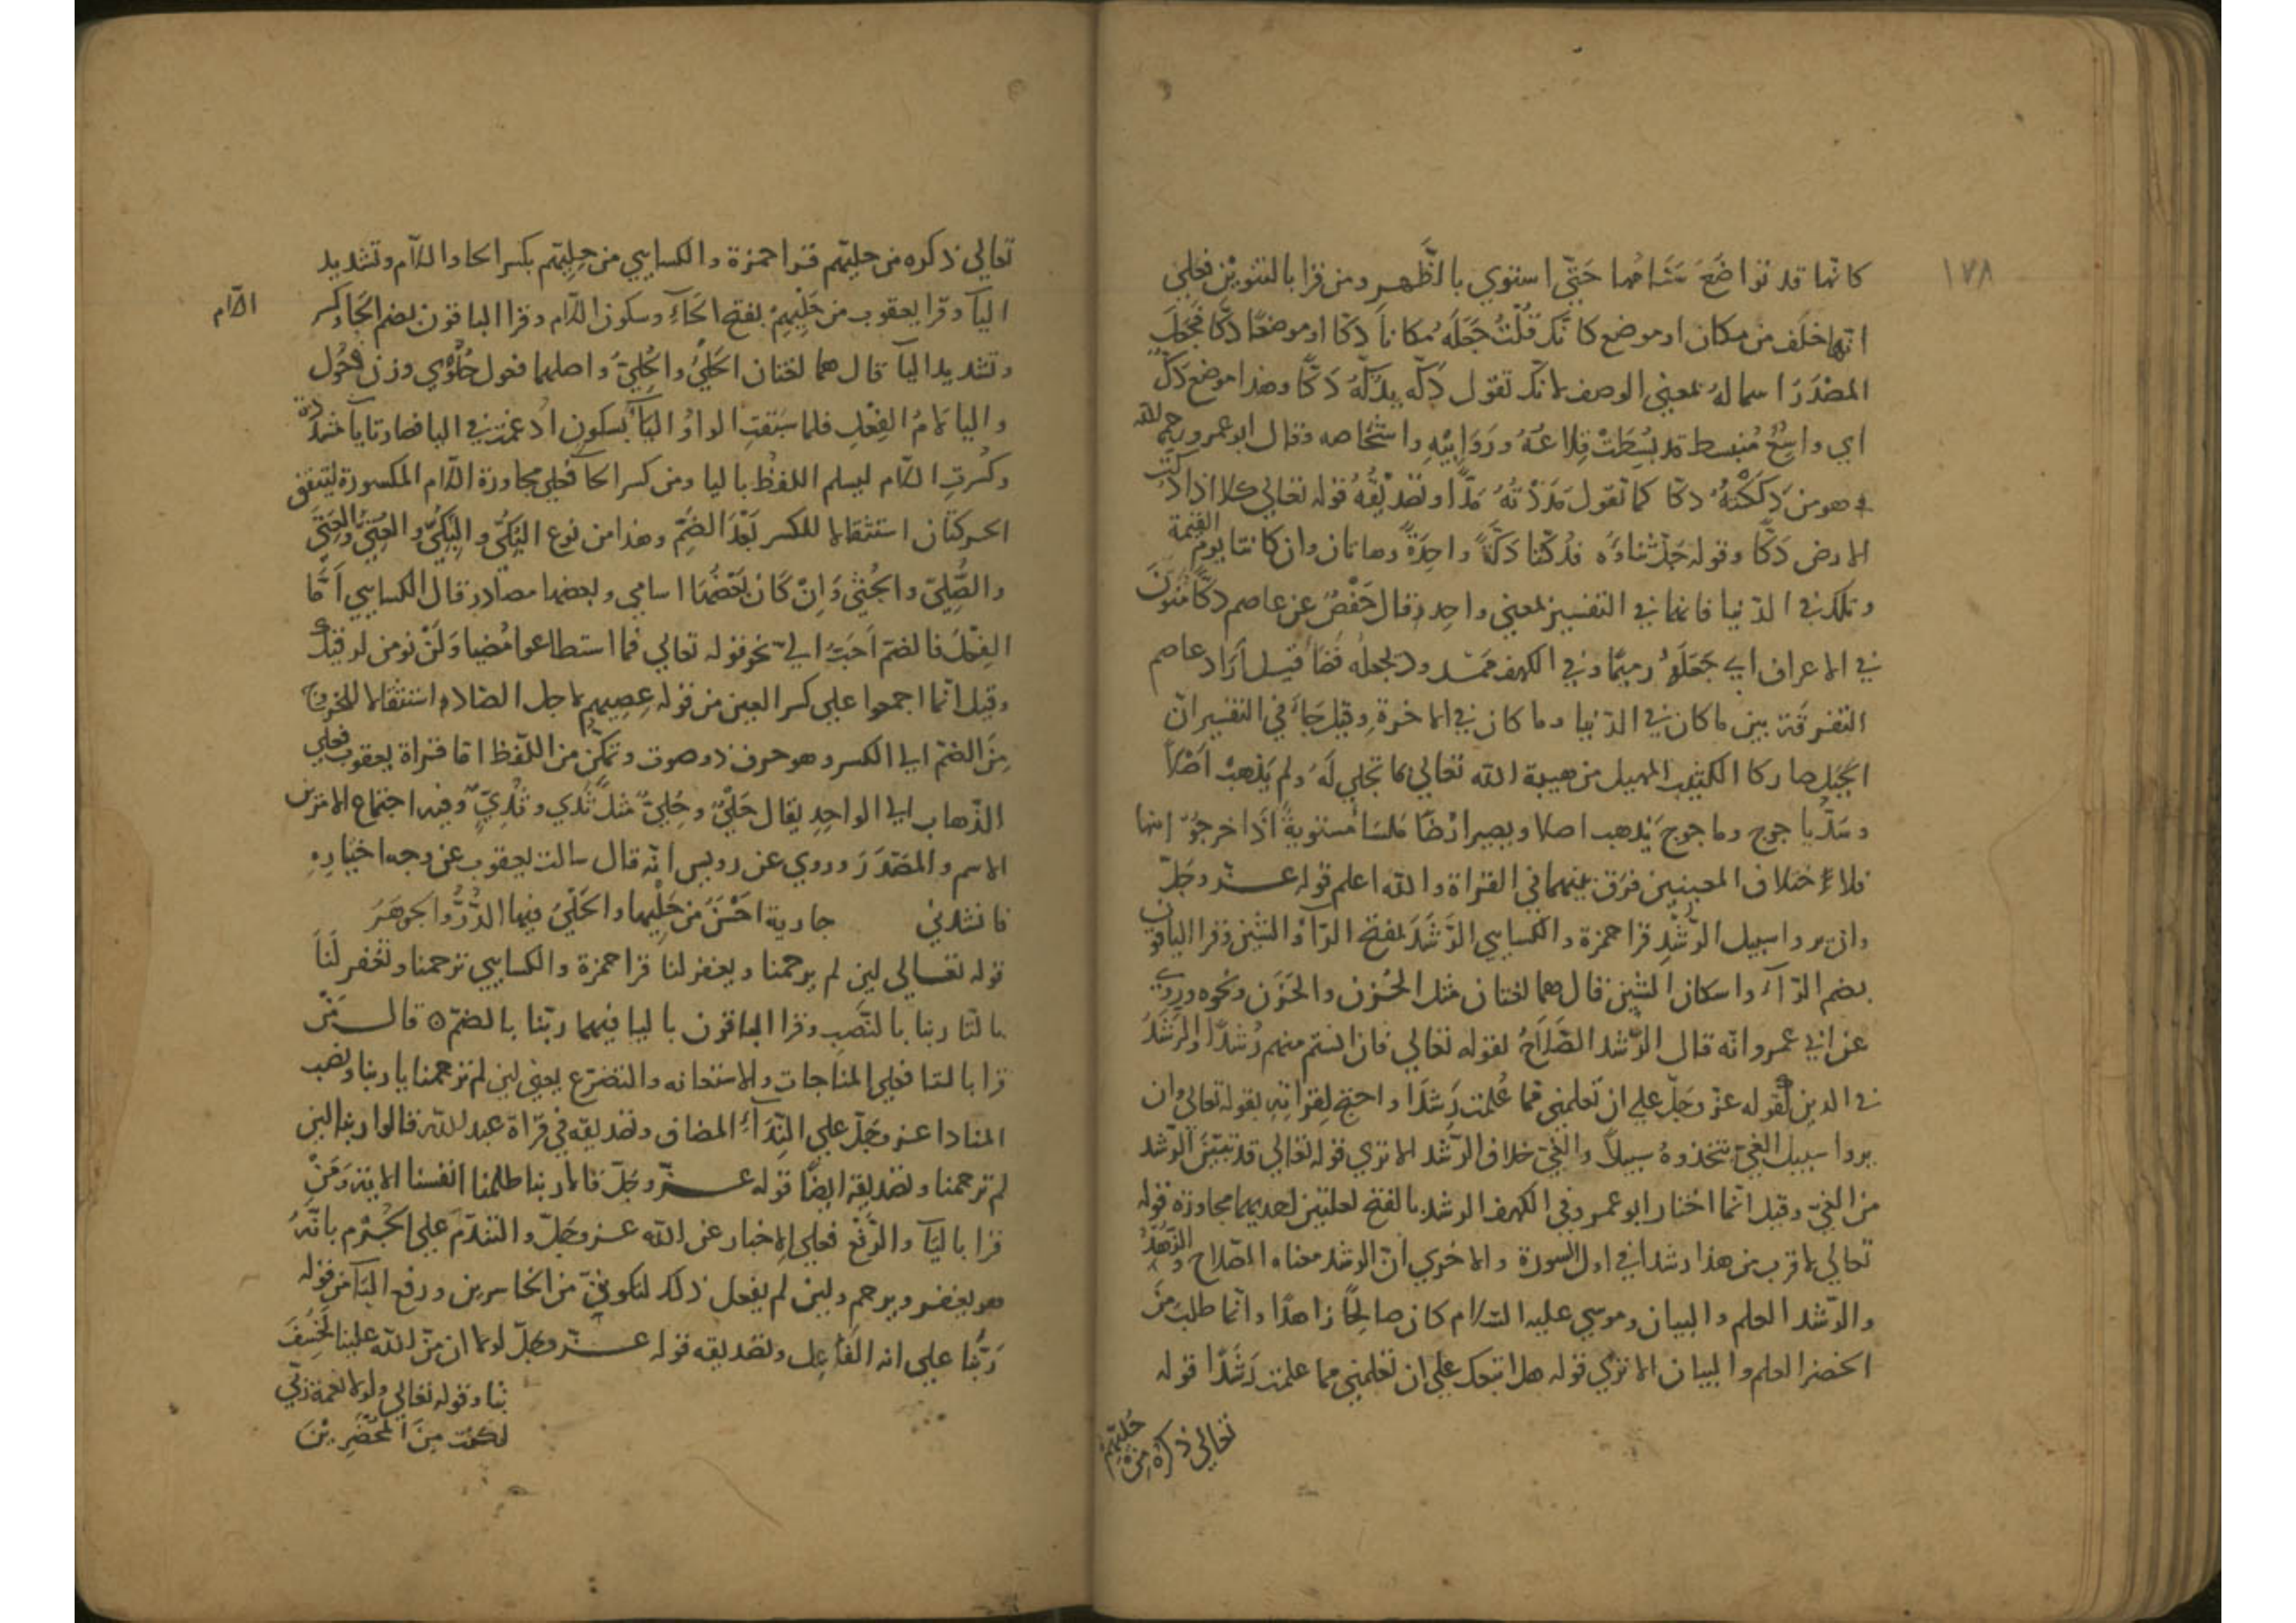 ١٧٨
كانها قد تواضَعَ سَنَامُها حَتّي استوي بالظَّهر ومن قرا بالتنوين فعلي
انهاخلَف من مكان او موضع كانّكَ قُلْتُ جَعَلَهُ مكانا دَكّا او موضعًا دَكّا فجعَلَ
المصْدَرَ اسما لهُ بمعني الوصف لانّك تقول دَكّه يدُكّهُ دَكًّا وهذا موضع دَكٌ
اي واسِعٌ مُنبسط قد بُسِطَتْ قِلاعُهُ ورَوَابِيْهِ واشخاصه وقال ابو عمرو رحمه الله
هو من دَكَكْتهُ دكّا كما تقول مَدَدْتُهُ مَدًّا وتصديقُهُ قوله تعالي كلا اذا دكّت
الارض دَكًّا وقوله جَلّ ثناؤه فدُكّتا دَكّةً واحِدَةً وهاتان وان كانتا يوم القيمة
وتلك في الدّنيا فانها في التفسير بمعني واحدٍ وقال حَفْصٌ عن عاصم دكّا مُنَوّنَ
في الاعراف اي جَعَلَهُ رميمًا وفي الكهف ممدود يجعله قَصًا قيل أرَادَ عاصم
التفرقة بين ما كان في الدّنيا وما كان في الاخرة وقيل جَاءَ في التفسير انّ
الجبَل صار كالكثيب المهيل من هيبة الله تعالي لما تجلي لَهُ ولم يَذْهبْ اصْلاً
وسَدُّ ياجوج وماجوج يَذهب اصلا ويصير ارْضًا مَلسَا مُستويةً اذا خرجوُا منها
فلاءِختلاف المعنيين فرَق بينهما في القراة والله اعلم قوله عــز وجَلّ
وان يروا سبيل الرّشْدِ قرا حمزة والكسايي الرَّشَدَ بفتح الرّآ والشين وقرا الباقون
بضم الرّآءِ واسكان الشين قال هما لغتان مثل الحُزن والحَزَن ونحوه وروي
عن ابي عمرو انّه قال الرّشد الصَّلَاحُ لقوله تعالي فان انستم منهم رُشدًا والرَشَدُ
في الدين لقوله عز وجَلّ علي ان تعلمني مما عُلمت رَشَدًا واحتج لِقراتِهِ بقوله تعالي وان
يروا سبيل الغيّ يتخذوهُ سبيلاً والغيّ خلاف الرّشد الا تري قوله تعالي قد تبيّنَ الرّشد
من الغيّ وقيل انّما اختار ابو عمرو في الكهف الرشد بالفتح لعلتين احديهما مجاوزة قوله
تعالي لاقرب من هذا رشدا في اول السورة والاخري انّ الرشد معناه الصّلاح والزّهدُ
والرّشد العلم والبيان وموسي عليه السّلام كان صالحًا زاهدًا وانّما طلب مِنَ
الخضر العلم والبيان الا تري قوله هل اتبعك علي ان تعلمني مما علمت رَشَدًا قوله
تعالي ذكرُه مِن حُلِيّهِمْ
تعالي ذكره من حليّهم قرا حمزة والكسايي من حِلِيّهم بكسر الحا والّلام وتشديد
اليآ وقرا يعقوب من حَلْيِهِمْ بفتح الحَآءِ وسكون الّلام وقرا الباقون بضم الحآ وكسر
الّلام
وتشديد اليآ قال هما لغتان الحَلْيُ والحُلِيّ واصلهما فعول حُلُوْي وزن فُعُول
واليا لَامُ الفِعْلِ فلما سَبَقتِ الواوُ اليَآءَ بسكون اُدغمت في اليا فصارتا ياً مُشدّدة
وكُسرتِ الّلام ليسلم اللفظُ باليا ومن كسر الحآ فعلي مجاورة الّلام المكسورة ليتفق
الحركتان استثقالا للكسر بَعْدَ الضَّمِّ وهذا من نوع البُكيّ والبِكيّ والعُتِيّ والعِتِيّ
والصُّلِيّ والجُثي وَإنْ كَانَ بَعْضُهَا اسامي وبعضها مصادر قال الكسايي اَمَّا
الفِعْلُ فالضم اَحَبّ اليّ نحو قوله تعالي فما استطاعوا مُضيا وَلَنْ نومن لرقيك
وقيل انّما اجمعوا علي كسر العين من قوله عِصِيهم لاجل الصّاد استثقالا للخروج
مِنَ الضّم الي الكسر وهو حرف ذو صوت وتمكّن من اللّفظ امّا قراة يعقوب فعلي
الذّهاب الي الواحِدِ يقال حَلْيٌ وحُلِيٌّ مثل ثَدي وثُدِيّ وفيه اجتماع الامرين
الاسم والمَصْدَرَ وروي عن رويس انّه قال سالت يعقوب عن وجه اختيارِهِ
فانشدني جارية احْسَنُ مِن حَلْيِها والحَلْيُ فيها الدُّرُّ والجوهَرُ
قوله تعــالي لين لم يرحمنا ويغفر لنا قرا حمزة والكسايي ترحمنا وتغفر لَنَا
بالتّا ربنا بالنّصبِ وقرا الباقون باليا فيهما ربّنا بالضمّ ⊙ قال مَنْ
قرا بالتا فعلي المناجات والاستغاثه والتضرّع يعني لين لم ترحمنا يا ربنا ونصب
المنادا عــز وجَلّ علي النِّدَآءِ المضاف وتصديقه في قرَاة عبد الله قالوا ربنا لين
لم ترحمنا وتصديقه ايضًا قوله عــزّ وجَلّ قالا ربنا ظلمنا انفسنا الاية وَمَنْ
قرا باليَآ والرَّفْع فعلي الاخبار عن الله عــز وجَلّ والتندّم علي الجُرْم بانّهُ
هو يغفر ويرحم ولين لم يفعل ذلك لنكوننّ من الخاسرين ورفع البَآ من قوله
رَبُّنا علي انه الفاعل وتصديقه قوله عــزّ وجلّ لولا ان مَنّ الله علينا لخَسَفَ
بنا وقوله تعالي ولولا نعمة ربّي
لكنت مِنَ المُحْضَرِيْنَ